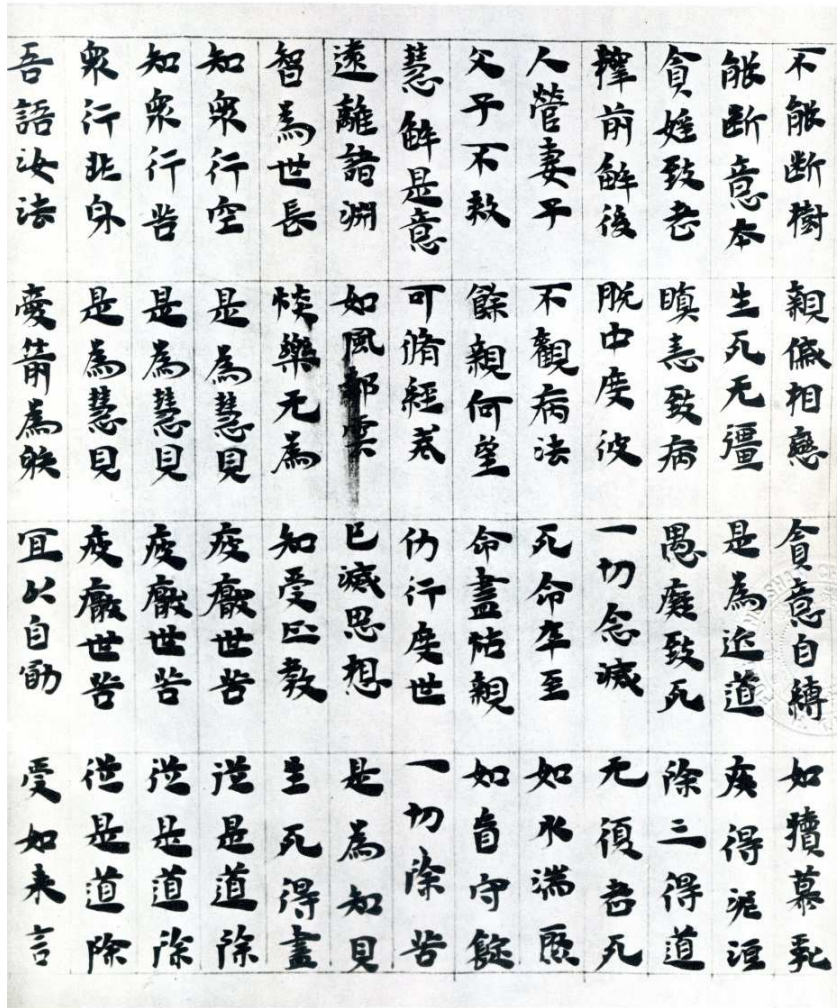 不能断樹 親傶相戀 貪意自縛 如犢慕乳
能断意本 生死无彊 是為近道 疾得泥洹
貪婬致老 瞋恚致病 愚癡致死 除三得道
釋前解後 脱中度彼 一切念滅 无復老死
人營妻子 不觀病法 死命卒至 如水湍驟
父子不救 餘親何望 命盡怙親 如盲守錠
慧解是意 可脩經戒 仂行度世 一切除苦
遠離諸淵 如風却雲 已滅思想 是為知見
智為世長 惔樂无為 知受正教 生死得盡
知衆行空 是為慧見 疲厭世苦 從是道除
知衆行苦 是為慧見 疲厭世苦 從是道除
衆行非身 是為慧見 疲厭世苦 從是道除
吾語汝法 愛箭為射 宜以自勖 受如来言